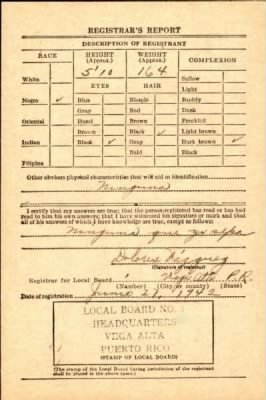 REGISTRAR'S REPORT
DESCRIPTION OF REGISTRANT
RACE HEIGHT (Approx.) WEIGHT (Approx.) COMPLEXION
5' 10 164
White Sallow
EYES HAIR Light
Negro ✓ Blue Blonde Ruddy
Gray Red Dark
Oriental Hazel Brown Freckled
Brown Black ✓ Light brown
Indian Black ✓ Gray Dark brown ✓
Bald Black
Filipino
Other obvious physical characteristics that will aid in identification
Ninguna
I certify that my answers are true; that the person registered has read or has had
read to him his own answers; that I have witnessed his signature or mark and that
all of his answers of which I have knowledge are true, except as follows:
Ninguna que yo sepa
Dolores
(Signature of registrar)
Registrar for Local Board 1 Vega Alta P.R.
(Number) (City or county) (State)
Date of registration Junio 27, 1942
LOCAL BOARD NO. 1
HEADQUARTERS
VEGA ALTA
PUERTO RICO
(STAMP OF LOCAL BOARD)
(The stamp of the Local Board having jurisdiction of the registrant
shall be placed in the above space.)